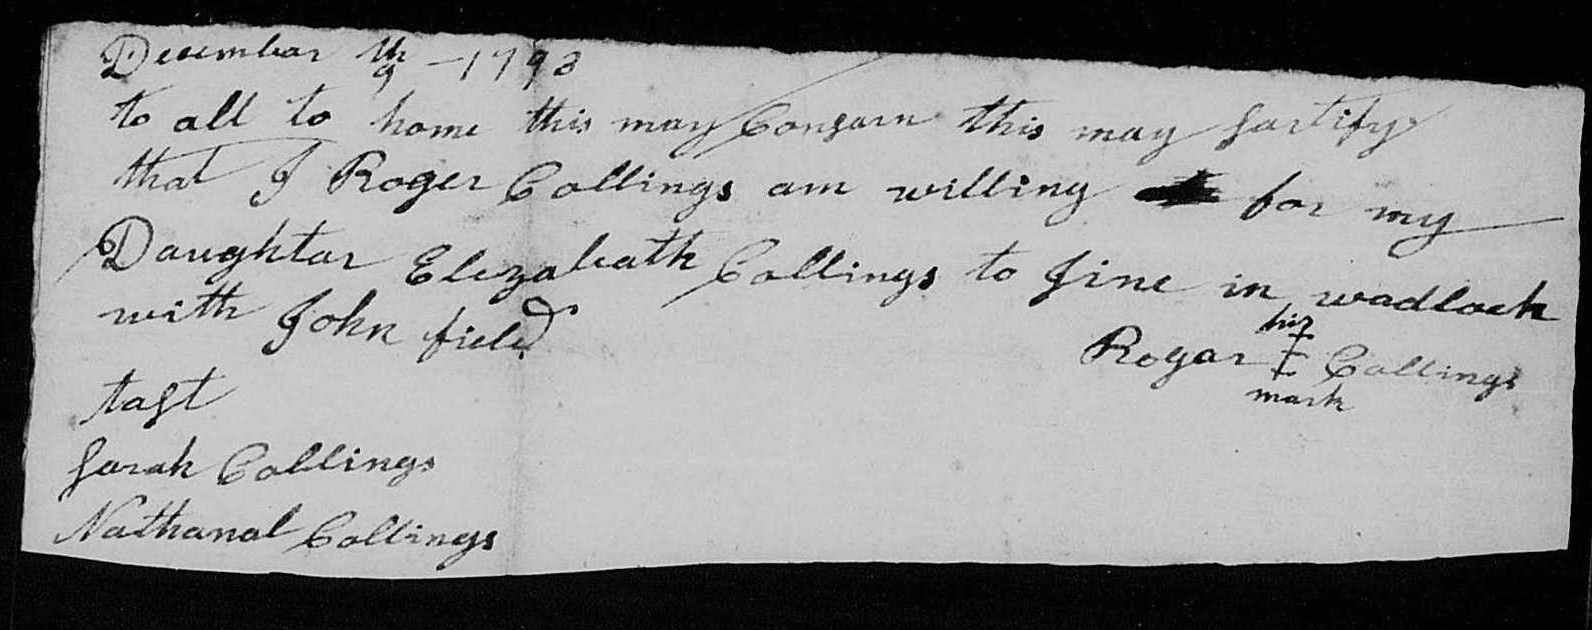 Decembar th 9 - 1793
to all to home this may Consarn this may sartify
that I Roger Collings am willing for my
Daughtar Elezabeath Collings to Jine in wadlock
with John field
his
Rogar ‡ Collings
mark
tast
Sarah Collings
Nathanal Collings